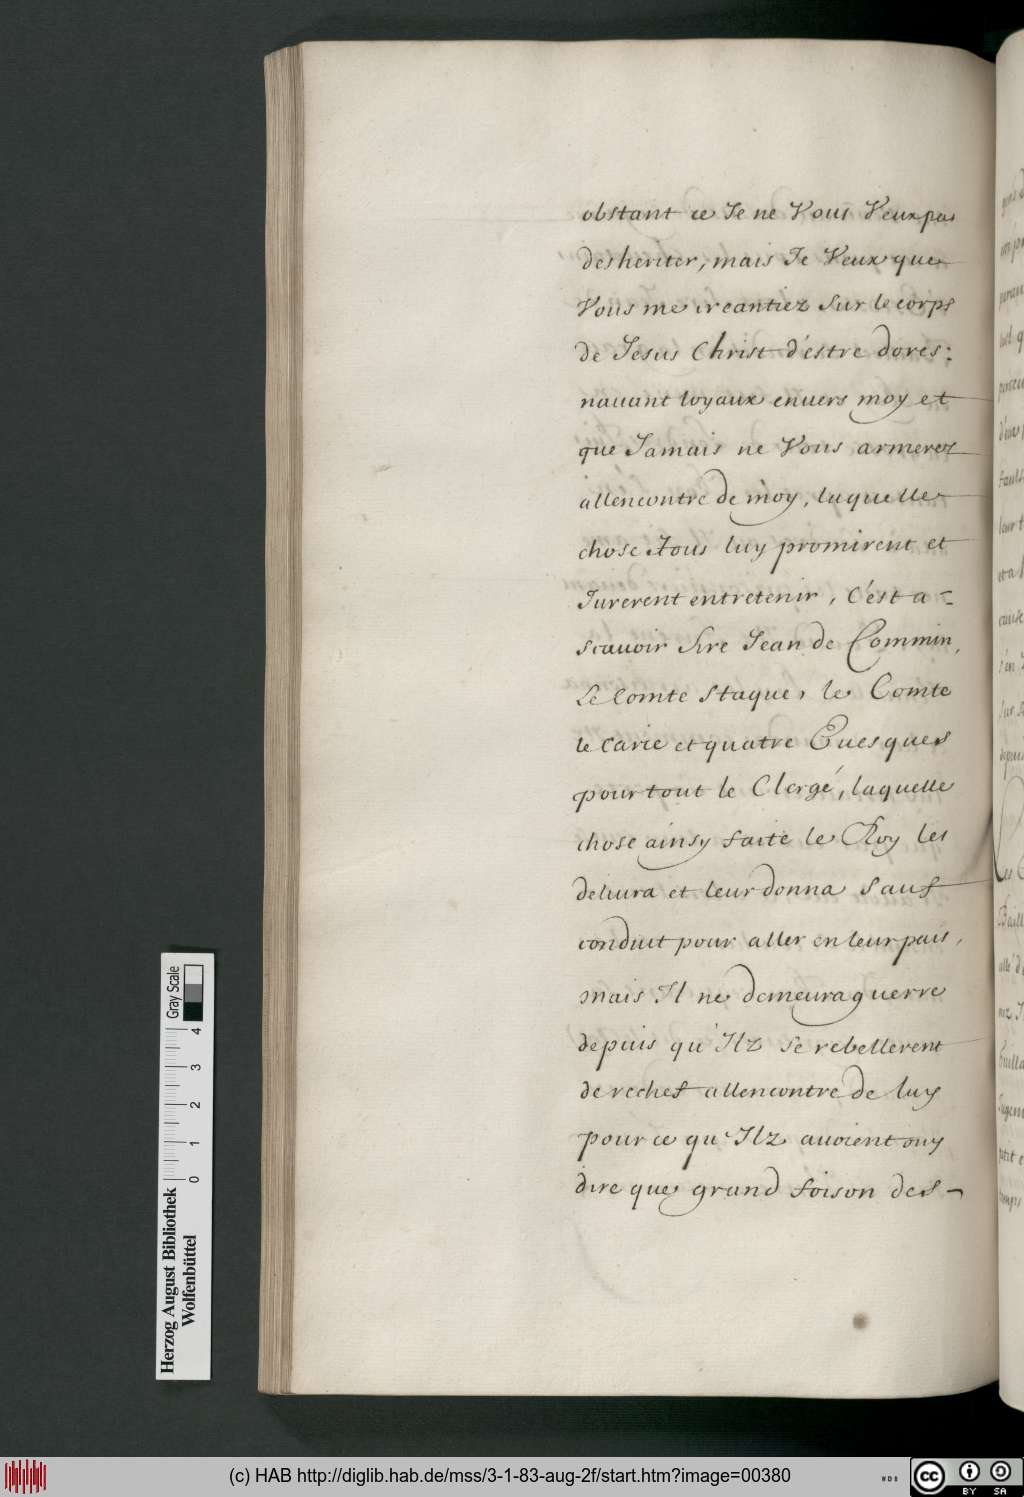 obstant ce Je ne Vous Veux pas
desheriter, mais Je Veux que
Vous me creantiez sur le corps
de Jesus Christ d'estre dores:
nauant loyaux enuers moy et
que Jamais ne Vous armerez
allencontre de moy, laquelle
chose Tous luy promirent et
Jurerent entretenir, c'est a-
scauoir Sire Jean de Commin,
Le Comte Staques, le Comte
le Carie et quatre Euesques
pour tout le Clergé, laquelle
chose ainsy faite le Roy les
deliura et leur donna sauf
conduit pour aller en leur pais,
mais Il ne demeura guerre
depuis qu'Ilz se rebellerent
de rechef allencontre de luy
pour ce qu'Ilz auoient ouy
dire que grand foison des-
Herzog August Bibliothek
Wolfenbüttel
0 1 2 3 4
Gray Scale
(c) HAB http://diglib.hab.de/mss/3-1-83-aug-2f/start.htm?image=00380
cc BY SA